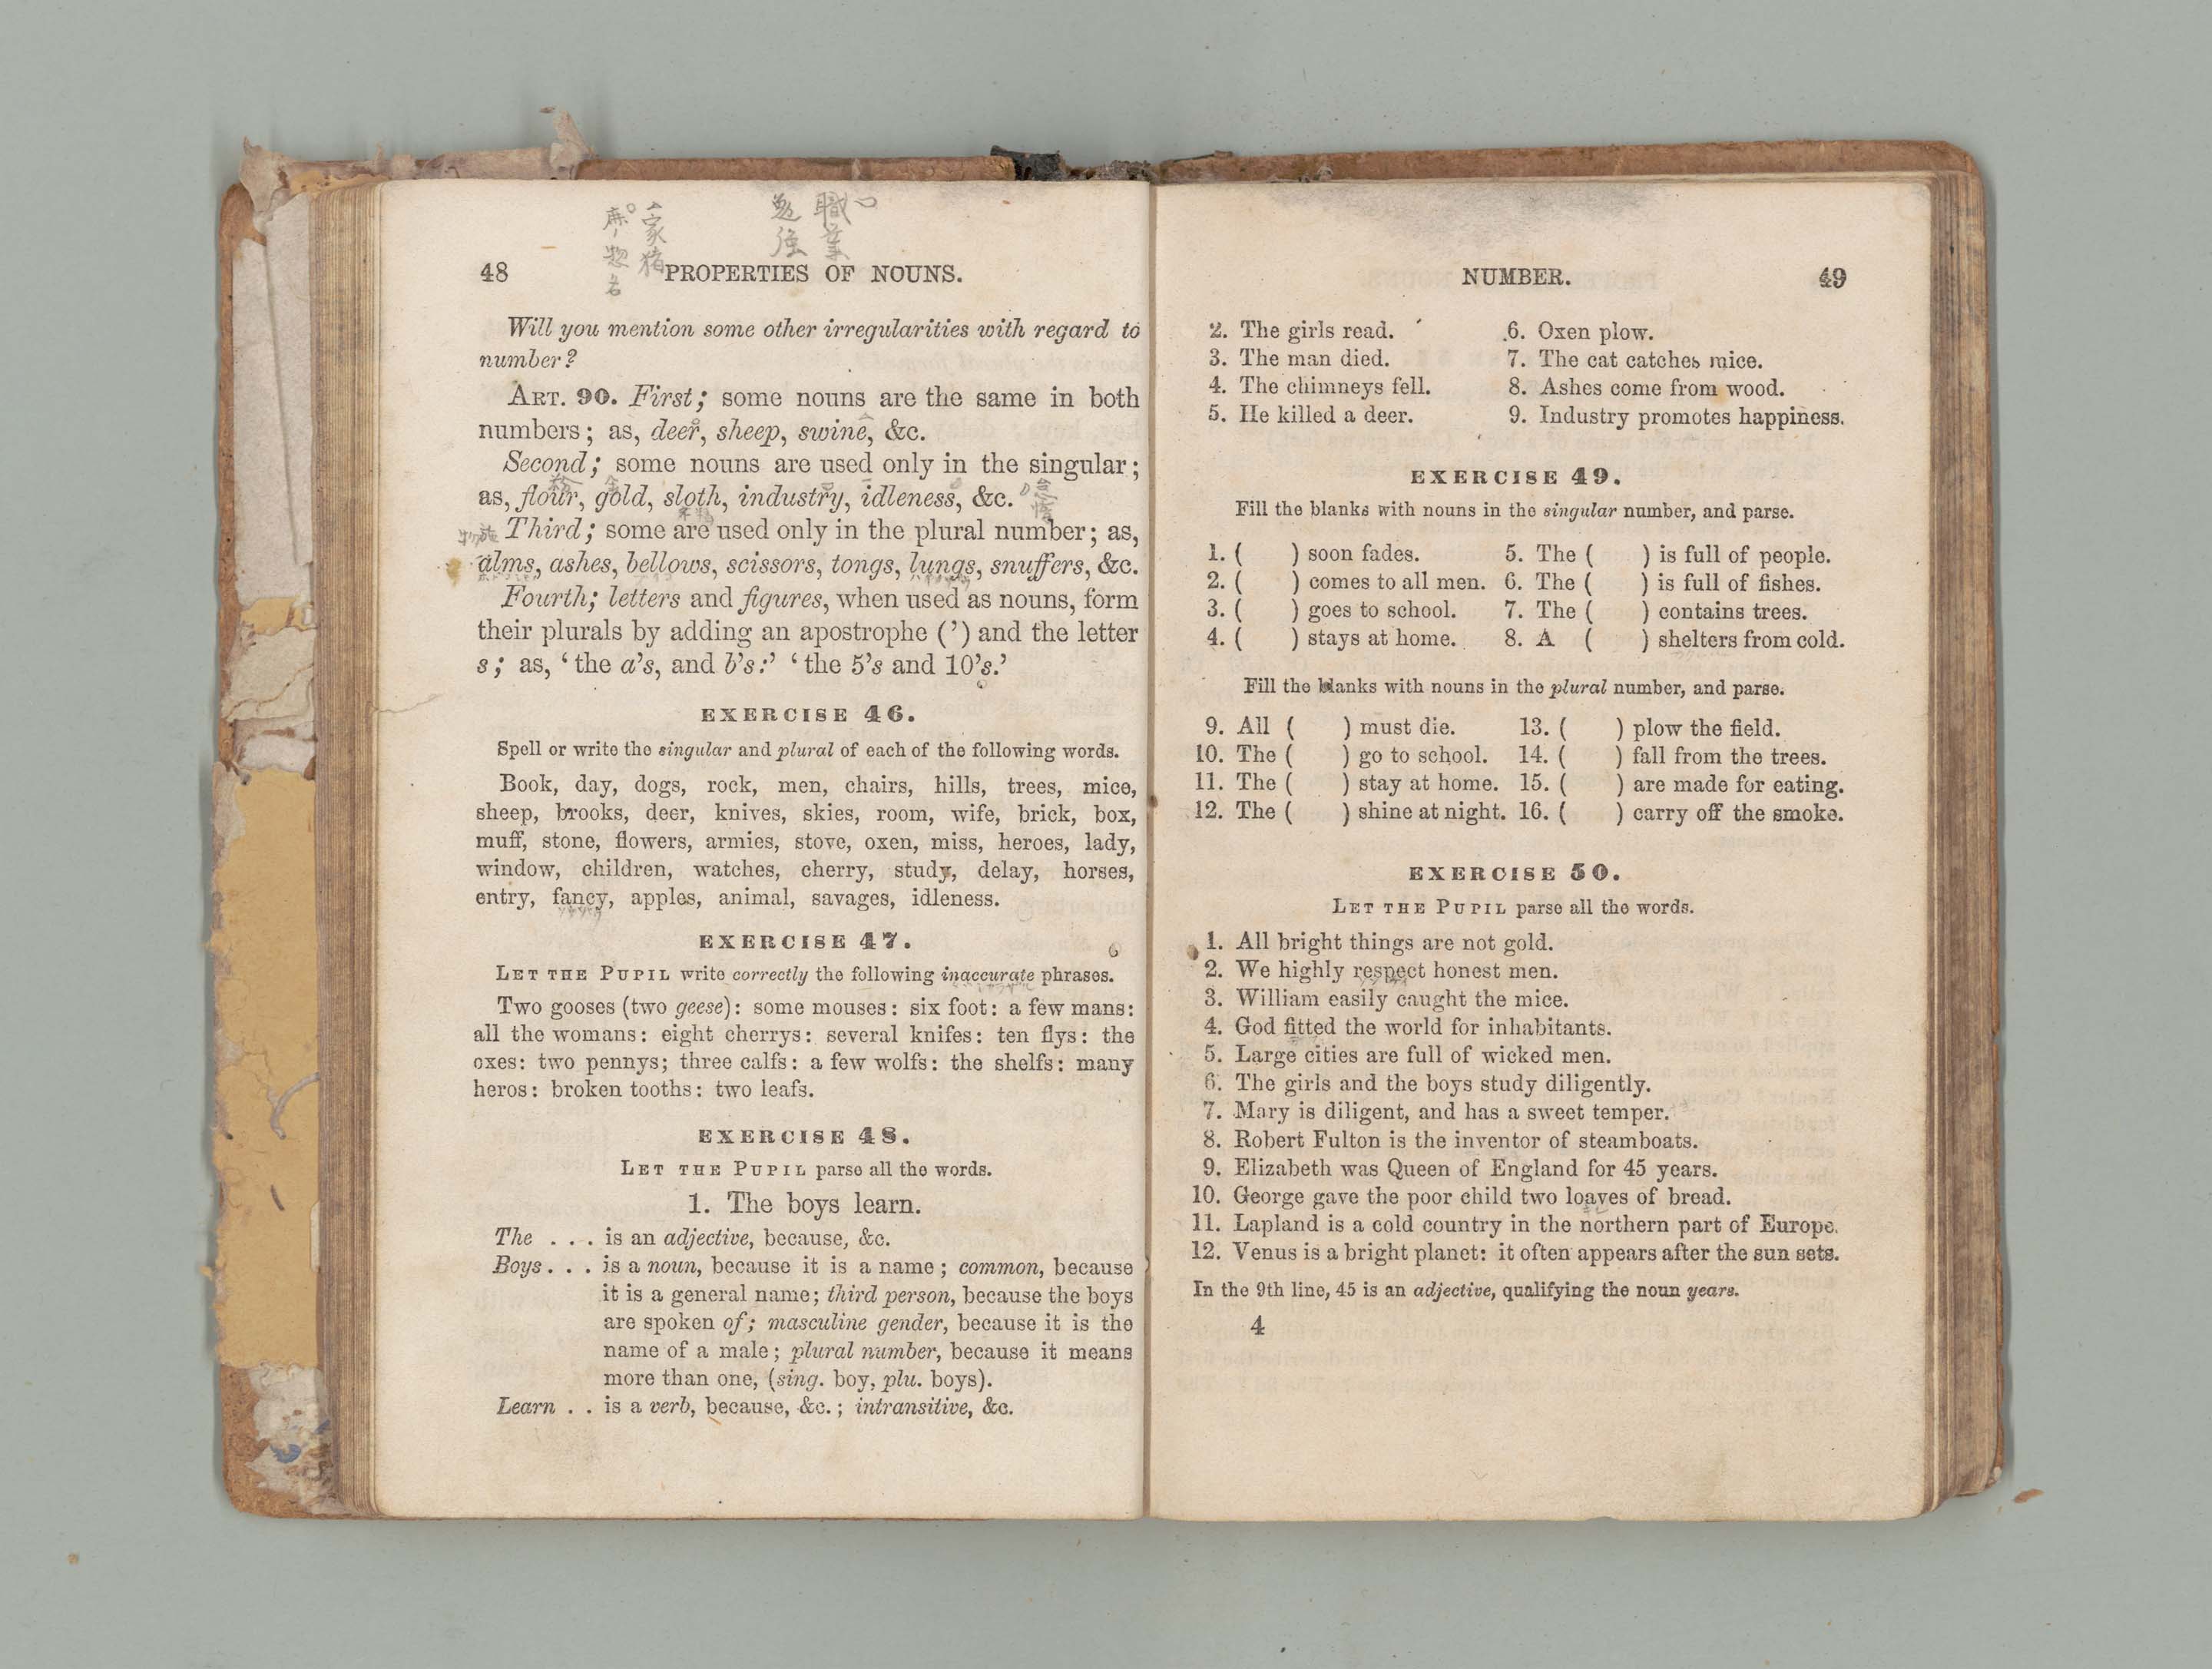 家猪
鹿惣名
職業
勉強
48 PROPERTIES OF NOUNS.
Will you mention some other irregularities with regard to
number?
ART. 90. First; some nouns are the same in both
numbers; as, deer, sheep, swine, &c.
Second; some nouns are used only in the singular;
as, flour, gold, sloth, industry, idleness, &c.
Third; some are used only in the plural number; as,
alms, ashes, bellows, scissors, tongs, lungs, snuffers, &c.
Fourth; letters and figures, when used as nouns, form
their plurals by adding an apostrophe (’) and the letter
s; as, ‘the a’s, and b’s:’ ‘the 5’s and 10’s.’
EXERCISE 46.
Spell or write the singular and plural of each of the following words.
Book, day, dogs, rock, men, chairs, hills, trees, mice,
sheep, brooks, deer, knives, skies, room, wife, brick, box,
muff, stone, flowers, armies, stove, oxen, miss, heroes, lady,
window, children, watches, cherry, study, delay, horses,
entry, fancy, apples, animal, savages, idleness.
EXERCISE 47.
LET THE PUPIL write correctly the following inaccurate phrases.
Two gooses (two geese): some mouses: six foot: a few mans:
all the womans: eight cherrys: several knifes: ten flys: the
oxes: two pennys; three calfs: a few wolfs: the shelfs: many
heros: broken tooths: two leafs.
EXERCISE 48.
LET THE PUPIL parse all the words.
1. The boys learn.
The . . . is an adjective, because, &c.
Boys . . . is a noun, because it is a name; common, because
it is a general name; third person, because the boys
are spoken of; masculine gender, because it is the
name of a male; plural number, because it means
more than one, (sing. boy, plu. boys).
Learn . . is a verb, because, &c.; intransitive, &c.
NUMBER. 49
2. The girls read. 6. Oxen plow.
3. The man died. 7. The cat catches mice.
4. The chimneys fell. 8. Ashes come from wood.
5. He killed a deer. 9. Industry promotes happiness.
EXERCISE 49.
Fill the blanks with nouns in the singular number, and parse.
1. ( ) soon fades. 5. The ( ) is full of people.
2. ( ) comes to all men. 6. The ( ) is full of fishes.
3. ( ) goes to school. 7. The ( ) contains trees.
4. ( ) stays at home. 8. A ( ) shelters from cold.
Fill the blanks with nouns in the plural number, and parse.
9. All ( ) must die. 13. ( ) plow the field.
10. The ( ) go to school. 14. ( ) fall from the trees.
11. The ( ) stay at home. 15. ( ) are made for eating.
12. The ( ) shine at night. 16. ( ) carry off the smoke.
EXERCISE 50.
LET THE PUPIL parse all the words.
1. All bright things are not gold.
2. We highly respect honest men.
3. William easily caught the mice.
4. God fitted the world for inhabitants.
5. Large cities are full of wicked men.
6. The girls and the boys study diligently.
7. Mary is diligent, and has a sweet temper.
8. Robert Fulton is the inventor of steamboats.
9. Elizabeth was Queen of England for 45 years.
10. George gave the poor child two loaves of bread.
11. Lapland is a cold country in the northern part of Europe.
12. Venus is a bright planet: it often appears after the sun sets.
In the 9th line, 45 is an adjective, qualifying the noun years.
4